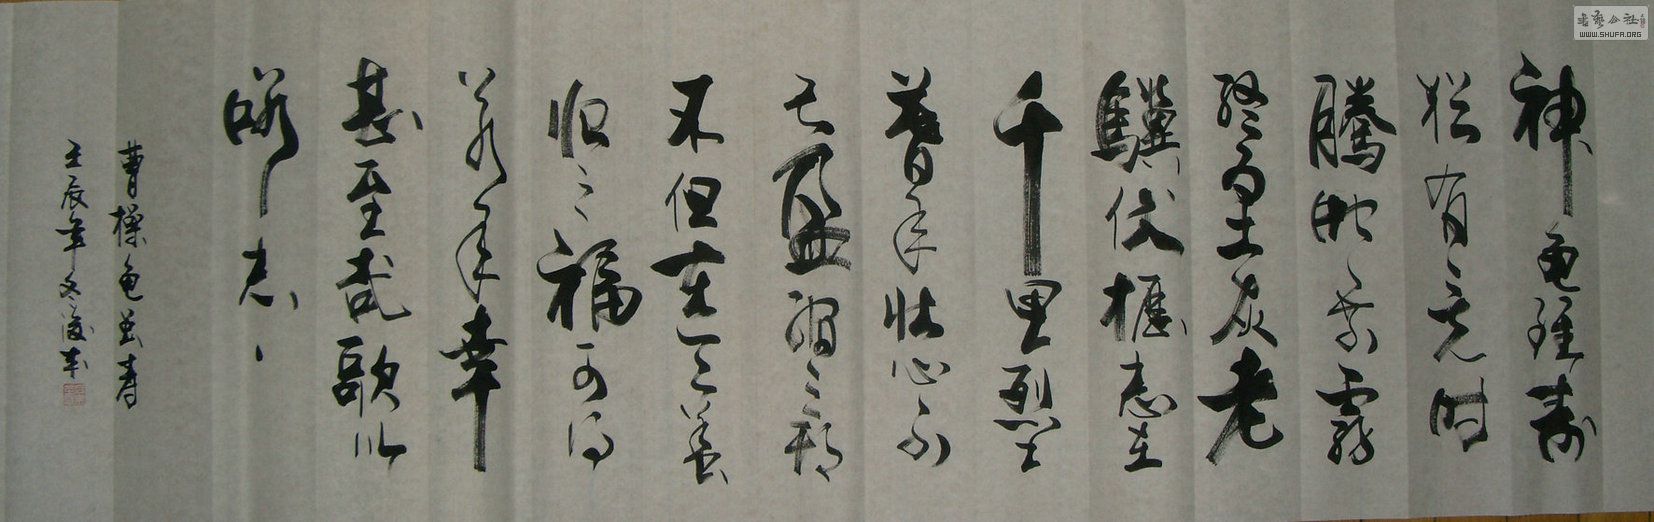 神龟雖壽
猶有竟时
騰蛇乘霧
终为土灰老
驥伏櫪志在
千里烈士
暮年壮心不
已盈縮之期
不但在天養
怡之福可得
永年幸
甚至哉歌以
咏志
曹操龟雖寿
壬辰年冬
書藝公社
WWW.SHUFA.ORG